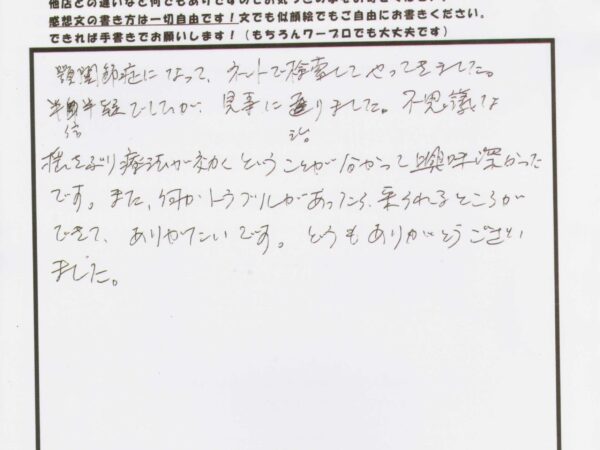 感想文の書き方は一切自由です！文でも似顔絵でもご自由にお書きください。
できれば手書きでお願いします！（もちろんワープロでも大丈夫です）
顎関節症になって、ネットで検索してやってきました。
半半疑でしたが、見事に りました。不思議な
信 治
揺さぶり療法が効くということが分かって興味深かった
です。また、何かトラブルがあったら、来られるところが
できて、ありがたいです。どうもありがとうござい
ました。